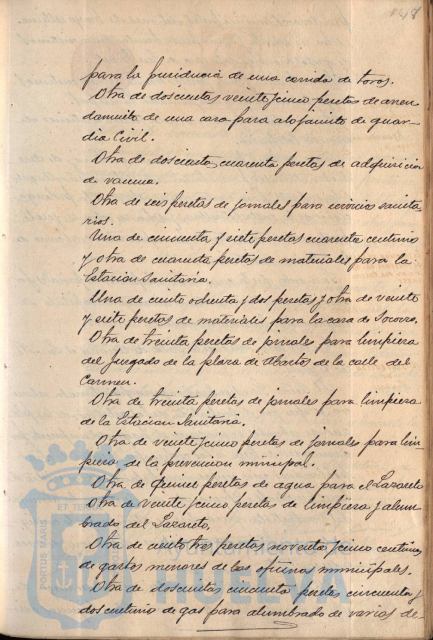 147
para la presidencia de una corrida de toros.
Otra de doscientas veinte y cinco pesetas de arren
damiento de una casa para alojamiento de guar
dia Civil.
Otra de doscientas cuarenta pesetas de adquisicion
de vacuna.
Otra de seis pesetas de jornales para servicios sanita
rios.
Una de cincuenta y siete pesetas cuarenta centimos
y otra de cuarenta pesetas de materiales para la
Estacion Sanitaria.
Una de ciento ochenta y dos pesetas y otra de veinte
y siete pesetas de materiales para la casa de Socorro.
Otra de treinta pesetas de jornales para limpieza
del Juzgado de la plaza de Abastos de la calle del
Carmen.
Otra de treinta pesetas de jornales para limpieza
de la Estacion Sanitaria.
Otra de veinte y cinco pesetas de jornales para lim
pieza de la prevencion municipal.
Otra de quince pesetas de agua para el Lazareto
Otra de veinte y cinco pesetas de limpieza y alum
brado del Lazareto.
Otra de ciento tres pesetas noventa y cinco centimos
de gastos menores de las oficinas municipales.
Otra de doscientas cincuenta pesetas cincuenta y
dos centimos de gas para alumbrado de varios de-
PORTUS MARIS
ET TE